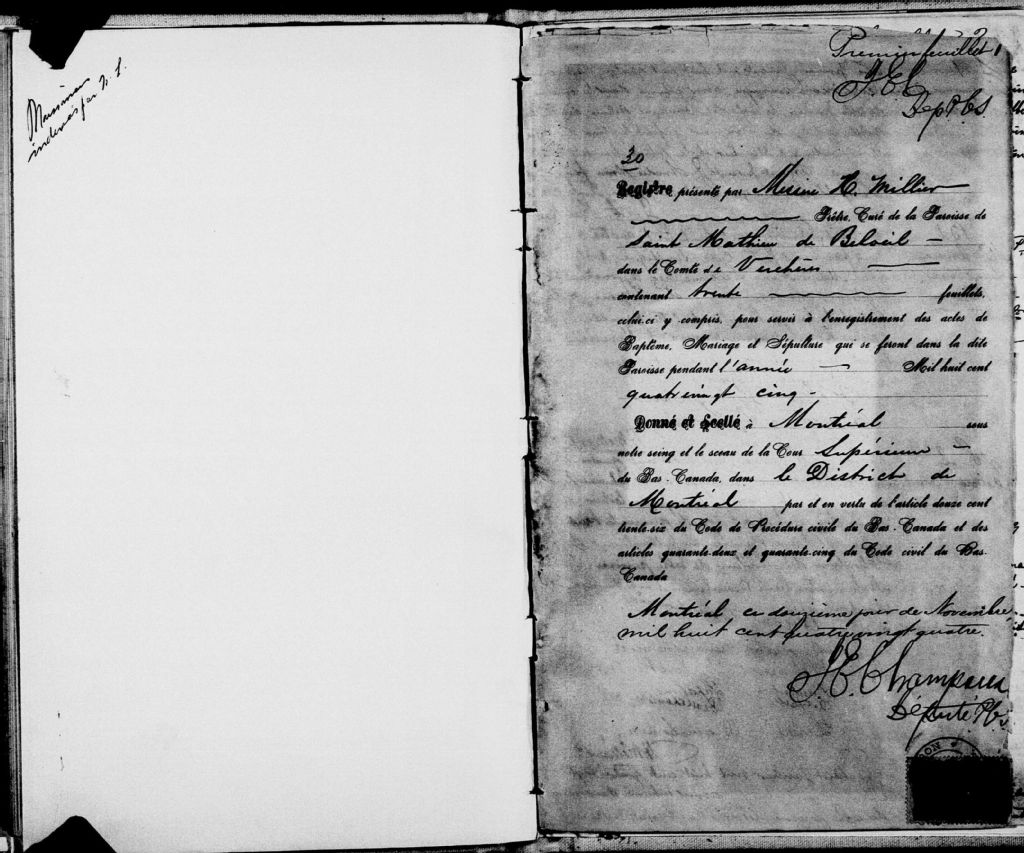 indexées par
Premier feuillet 1
J.E.C
Dep P.C.S.
30
Registre présenté par Messire H. Millier
Prêtre, Curé de la Paroisse de
Saint Mathieu de Beloeil
dans le Comté de Verchères
contenant trente feuillets,
celui-ci y compris, pour servir à l'enregistrement des actes de
Baptême, Mariage et Sépulture qui se feront dans la dite
Paroisse pendant l'année Mil huit cent
quatre vingt cinq.
Donné et Scellé à Montréal sous
notre seing et le sceau de la Cour Supérieure
du Bas-Canada, dans le District de
Montréal par et en vertu de l'article douze cent
trente-six du Code de Procédure civile du Bas-Canada et des
articles quarante-deux et quarante-cinq du Code civil du Bas-
Canada
Montréal ce douzième jour de Novembre
mil huit cent quatre vingt quatre.
J.E. Champoux
Député P.C.S.